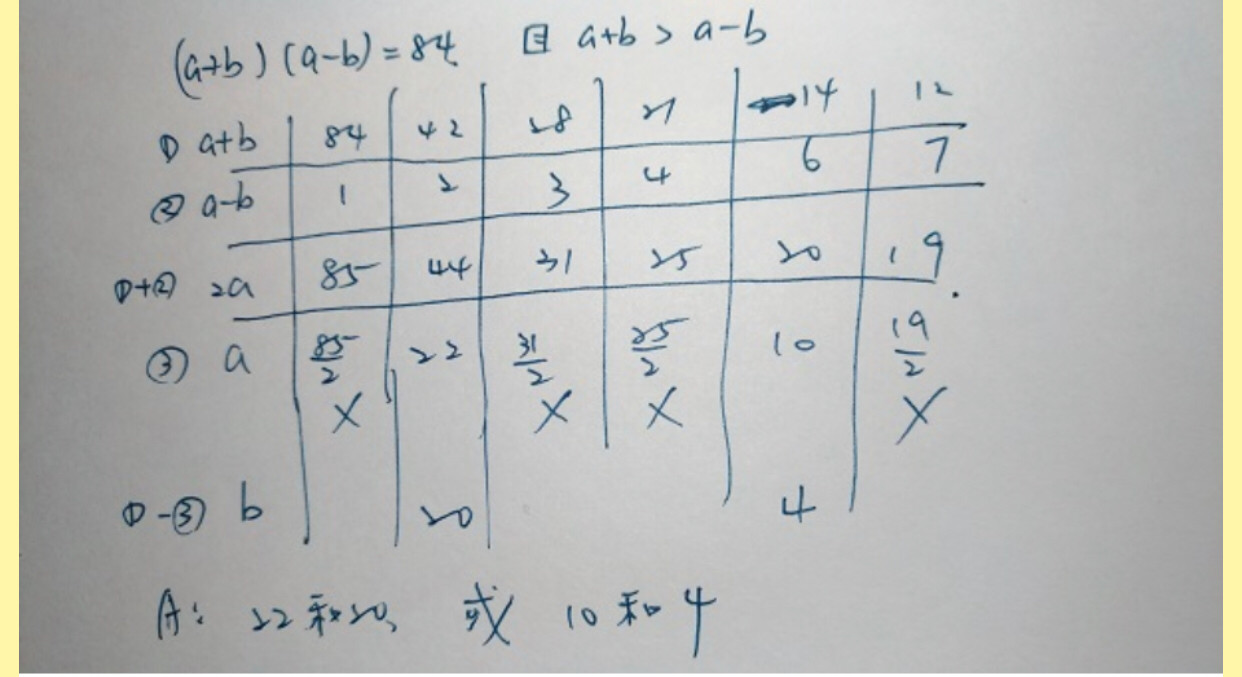 (a+b)(a-b)=84 且 a+b > a-b
① a+b 84 42 28 21 14 12
② a-b 1 2 3 4 6 7
①+② 2a 85 44 31 25 20 19
③ a 85/2 22 31/2 25/2 10 19/2
X X X X
①-③ b 20 4
A: 22和20, 或 10和4